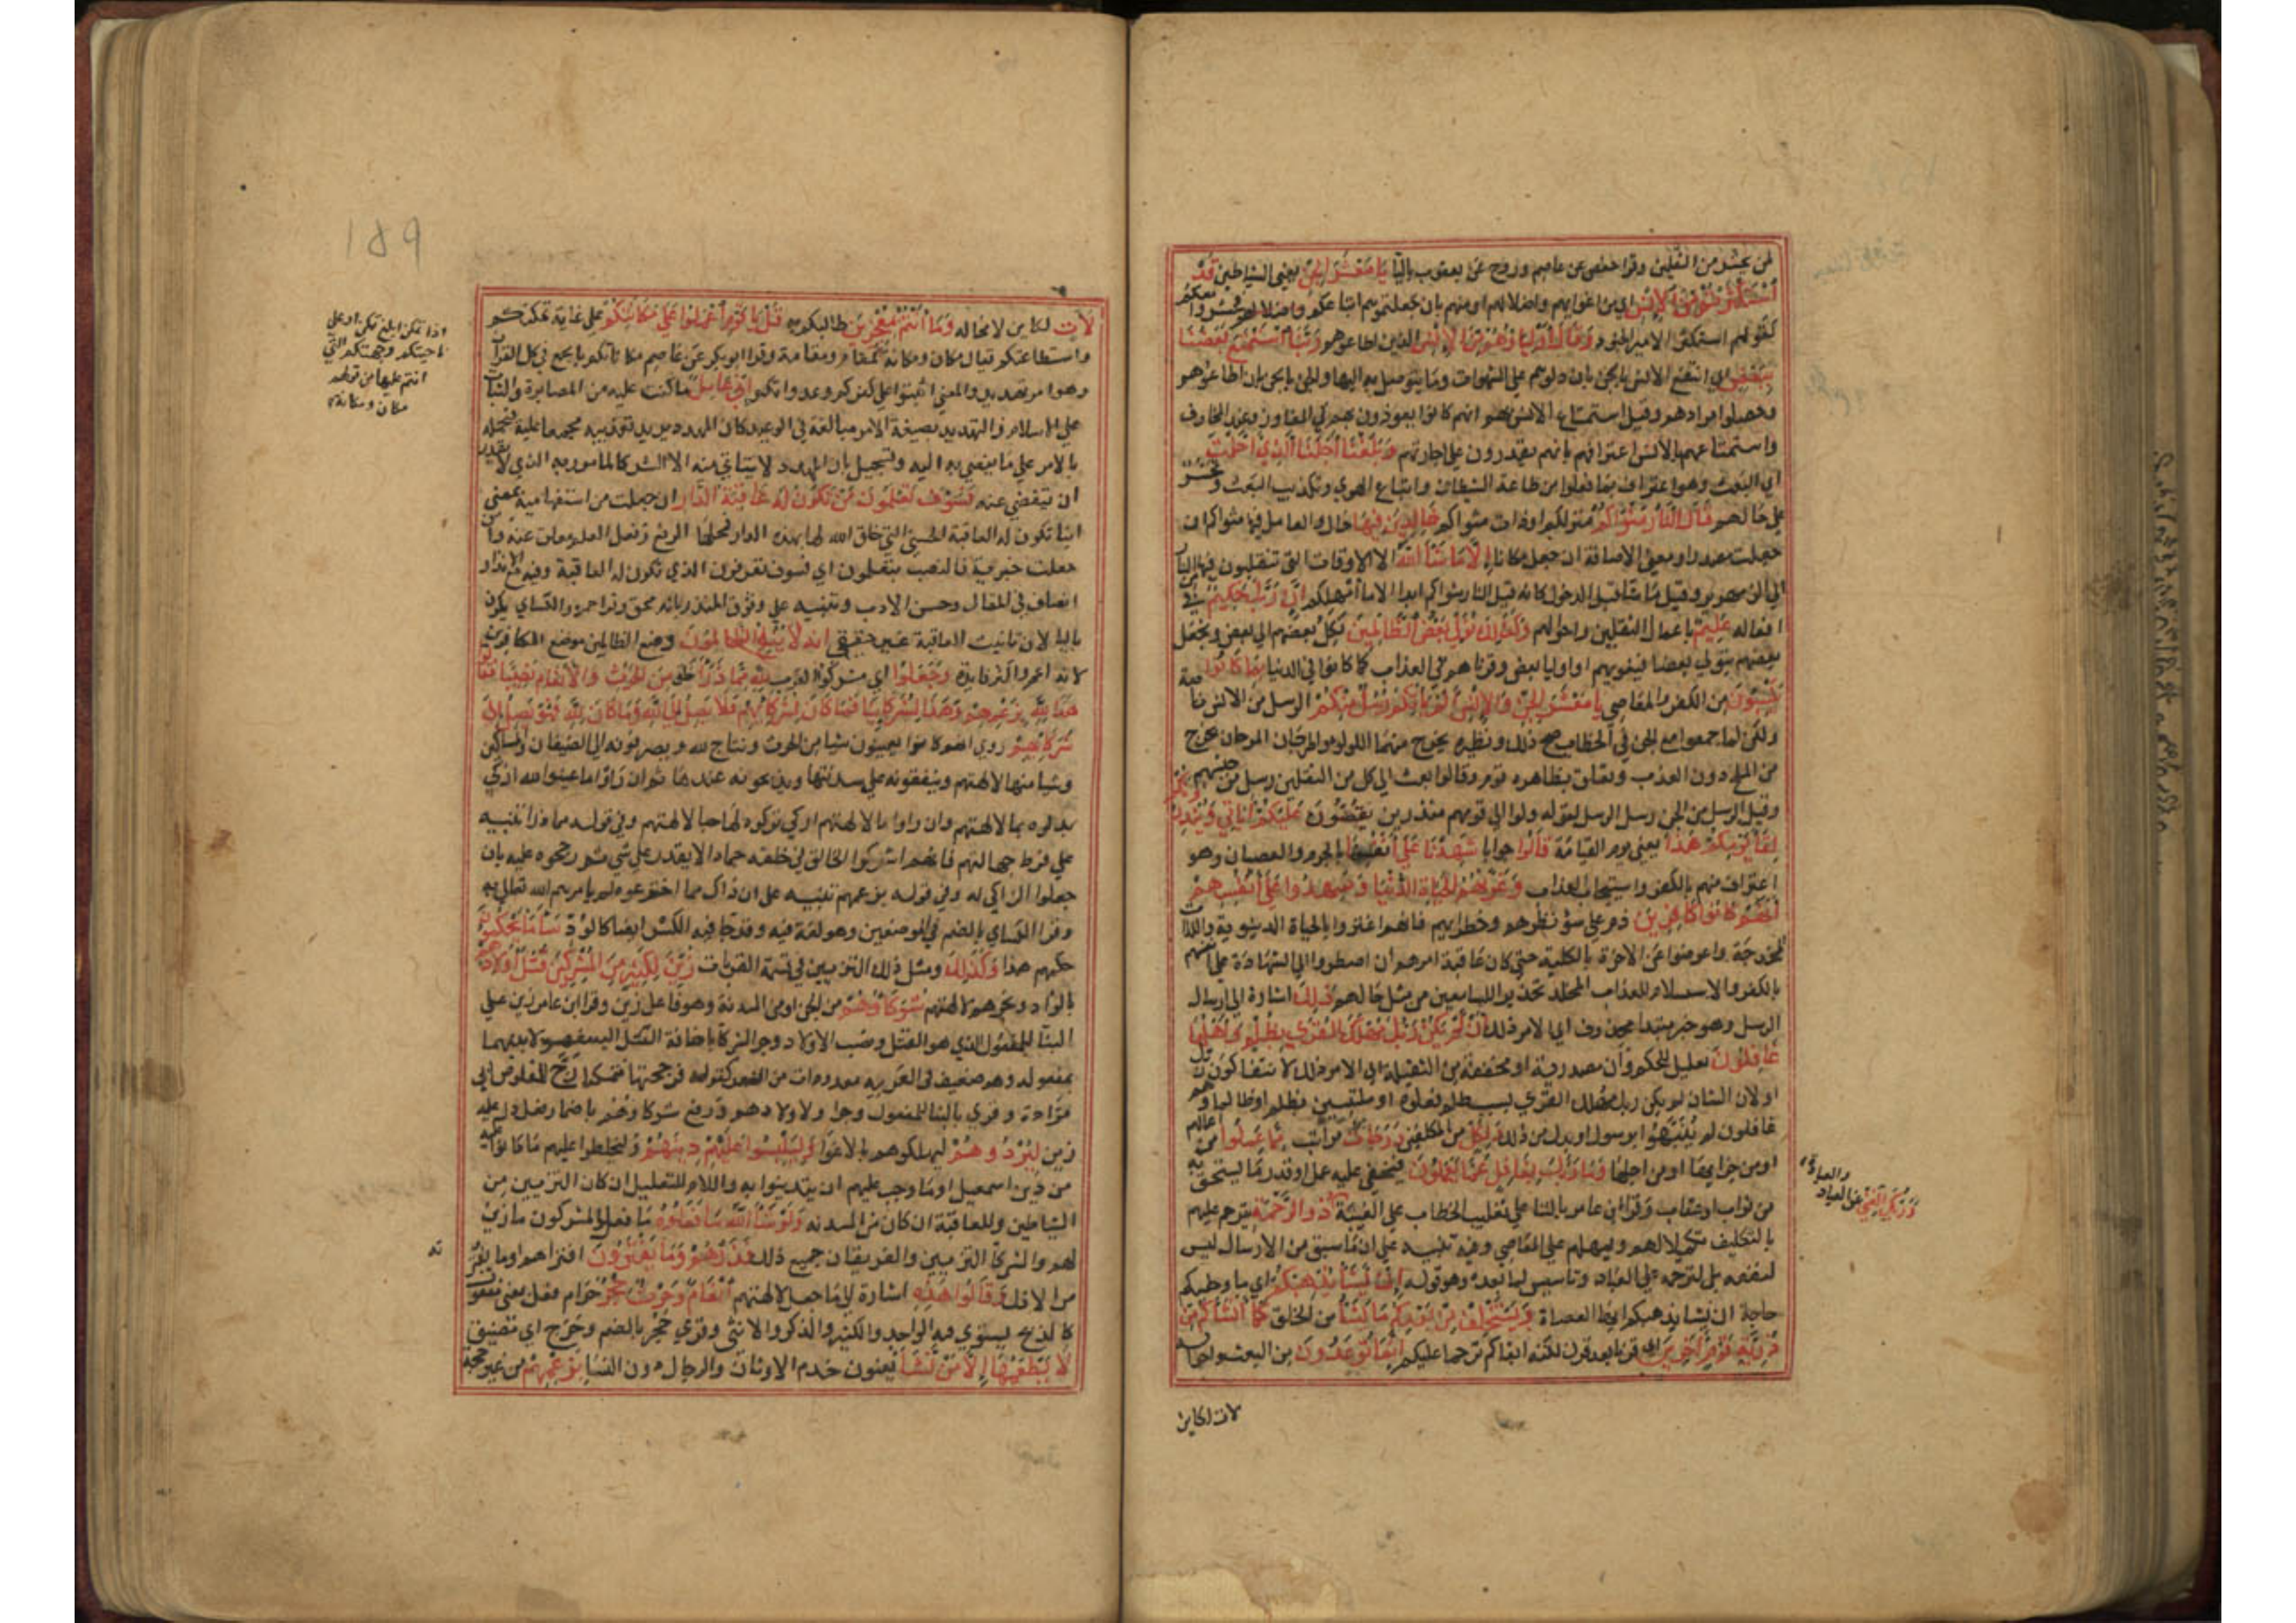 لمن يحشر من الثقلين وقرا حفص عن عاصم وروح عن يعقوب باليا يَا مَعْشَرَ الجِنِّ يعني الشياطين قَدِ
اسْتَكْثَرْتُمْ مِنَ الإِنْسِ اي من اغوايهم واضلالهم او منهم بان جعلتموهم اتباعكم فحشروا معكم
كقولهم استكثر الامير من الجنود وَقَالَ أَوْلِيَاؤُهُمْ مِنَ الإِنْسِ الذين اطاعوهم رَبَّنَا اسْتَمْتَعَ بَعْضُنَا
بِبَعْضٍ اي انتفع الانس بالجن بان دلوهم على الشهوات وما يتوصل به اليها والجن بالانس بان اطاعوهم
وحصلوا مرادهم وقيل استمتاع الانس بهم انهم كانوا يعوذون بهم في المفاوز وعند المخاوف
واستمتاعهم بالانس اعترافهم بانهم يقدرون على اجارتهم وَبَلَغْنَا أَجَلَنَا الَّذِي أَجَّلْتَ
اي البعث وهو اعتراف بما فعلوا من طاعة الشيطان واتباع الهوي وتكذيب البعث وتحسر
على حالهم قَالَ النَّارُ مَثْوَاكُمْ منزلكم او ذات مثواكم خَالِدِينَ فِيهَا حال والعامل فيها مثواكم ان
جعلت مصدرا ومعنى الاضافة ان جعل مكانا إِلَّا مَا شَاءَ اللَّهُ الا الاوقات التي تنقلون فيها من النار
الي الزمهرير وقيل الا ما شا قبل الدخول كانه قيل النار مثواكم ابدا الا ما امهلكم إِنَّ رَبَّكَ حَكِيمٌ في
افعاله عَلِيمٌ باعمال الثقلين واحوالهم وَكَذَلِكَ نُوَلِّي بَعْضَ الظَّالِمِينَ نكل بعضهم الي بعض ونجعل
بعضهم يتولي بعضا فيغويهم او اوليا بعض وقرناهم في العذاب كما كانوا في الدنيا بِمَا كَانُوا
يَكْسِبُونَ من الكفر والمعاصي يَا مَعْشَرَ الجِنِّ وَالإِنْسِ أَلَمْ يَأْتِكُمْ رُسُلٌ مِنْكُمْ الرسل من الانس خاصة
ولكن لما جمعوا مع الجن في الخطاب صح ذلك ونظيره يخرج منهما اللولو والمرجان المرجان يخرج
من الملح دون العذب وتعلق بظاهره قوم وقالوا بعث الي كل من الثقلين رسل من جنسهم
وقيل الرسل من الجن رسل الرسل لقوله ولوا الي قومهم منذرين يَقُصُّونَ عَلَيْكُمْ آيَاتِي وَيُنْذِرُونَكُمْ
لِقَاءَ يَوْمِكُمْ هَذَا يعني يوم القيامة قَالُوا جوابا شَهِدْنَا عَلَى أَنْفُسِنَا بالجرم والعصيان وهو
اعتراف منهم بالكفر واستيجاب العذاب وَغَرَّتْهُمُ الحَيَاةُ الدُّنْيَا وَشَهِدُوا عَلَى أَنْفُسِهِمْ
أَنَّهُمْ كَانُوا كَافِرِينَ ذم على سؤ نظرهم وخطا رايهم فانهم اغتروا بالحياة الدنيوية واللذات
المخدجة واعرضوا عن الاخرة بالكلية حتى كان عاقبة امرهم ان اضطروا الي الشهادة على انفسهم
بالكفر والاستسلام للعذاب المخلد تحذيرا للسامعين من مثل حالهم ذَلِكَ اشارة الي ارسال
الرسل وهو خبر مبتدا محذوف اي الامر ذلك أَنْ لَمْ يَكُنْ رَبُّكَ مُهْلِكَ القُرَى بِظُلْمٍ وَأَهْلُهَا
غَافِلُونَ تعليل للحكم وان مصدرية او مخففة من الثقيلة اي الامر ذلك لانتفا كون ربك
او لان الشان لم يكن ربك مهلك القري بسبب ظلم فعلوه او ملتبسين بظلم او ظالما وهم
غافلون لم ينبهوا برسول او بدل من ذلك وَلِكُلٍّ من المكلفين دَرَجَاتٌ مراتب مِمَّا عَمِلُوا من اعمالهم
او من جزايها او من اجلها وَمَا رَبُّكَ بِغَافِلٍ عَمَّا يَعْمَلُونَ فيخفي عليه عمل او قدر ما يستحق به
من ثواب او عقاب وقرا ابن عامر بالتا على تغليب الخطاب على الغيبة ذُو الرَّحْمَةِ يترحم عليهم
بالتكليف تكميلا لهم ويمهلهم على المعاصي وفيه تنبيه على ان ما سبق من الارسال ليس
لنفعه بل لترحمه على العباد وتاسيس لما بعده وهو قوله إِنْ يَشَأْ يُذْهِبْكُمْ اي ما به اليكم
حاجة ان يشا يذهبكم ايها العصاة وَيَسْتَخْلِفْ مِنْ بَعْدِكُمْ مَا يَشَاءُ من الخلق كَمَا أَنْشَأَكُمْ مِنْ
ذُرِّيَّةِ قَوْمٍ آخَرِينَ اي قرنا بعد قرن لكنه ابقاكم ترحما عليكم إِنَّمَا تُوعَدُونَ من البعث واحواله
وَرَبُّكَ الغَنِيُّ عن العباد
والعبادة
لات لكاين
١٥٩
لَآتٍ لكاين لا محالة وَمَا أَنْتُمْ بِمُعْجِزِينَ طالبكم به قُلْ يَا قَوْمِ اعْمَلُوا عَلَى مَكَانَتِكُمْ على غاية تمكنكم
واستطاعتكم يقال مكان ومكانة كمقام ومقامة وقرا ابو بكر عن عاصم مكاناتكم بالجمع في كل القران
وهو امر تهديد والمعنى اثبتوا على كفركم وعداوتكم إِنِّي عَامِلٌ ما كنت عليه من المصابرة والثبات
على الاسلام والتهديد بصيغة الامر مبالغة في الوعيد كان المهدد يريد تعذيبه مجمعا عليه فيحمله
بالامر على ما يفضي به اليه وتسجيل بان المهدد لا يتاتي منه الا الشر كالمامور به الذي لا يقدر
ان يتفصي عنه فَسَوْفَ تَعْلَمُونَ مَنْ تَكُونُ لَهُ عَاقِبَةُ الدَّارِ ان جعلت من استفهامية بمعنى
اينا تكون له العاقبة الحسنى التي خلق الله لها هذه الدار فمحلها الرفع وفعل العلم معلق عنه وان
جعلت خبرية فالنصب بتعلمون اي فسوف تعرفون الذي تكون له العاقبة وفيه مع الانذار
انصاف في المقال وحسن الادب وتنبيه على وثوق المنذر بانه محق وقرا حمزة والكساي يكون
باليا لان تانيث العاقبة غير حقيقي إِنَّهُ لَا يُفْلِحُ الظَّالِمُونَ وضع الظالمين موضع الكافرين
لانه اعم واكثر فايدة وَجَعَلُوا اي مشركوا العرب لِلَّهِ مِمَّا ذَرَأَ خلق مِنَ الحَرْثِ وَالأَنْعَامِ نَصِيبًا فَقَالُوا
هَذَا لِلَّهِ بِزَعْمِهِمْ وَهَذَا لِشُرَكَائِنَا فَمَا كَانَ لِشُرَكَائِهِمْ فَلَا يَصِلُ إِلَى اللَّهِ وَمَا كَانَ لِلَّهِ فَهُوَ يَصِلُ إِلَى
شُرَكَائِهِمْ روي انهم كانوا يعينون شيا من الحرث ونتاج لله ويصرفونه الي الضيفان والمساكين
وشيا منها لالهتهم وينفقونه على سدنتها ويذبحونه عندها ثم ان راوا ما عينوا لله ازكي
بدلوه بما لالهتهم وان راوا ما لالهتهم ازكي تركوه لها حبا لالهتهم وفي قوله مما ذرا تنبيه
على فرط جهالتهم فانهم اشركوا الخالق في خلقه جمادا لا يقدر على شي ثم رجحوه عليه بان
جعلوا الزاكي له وفي قوله بزعمهم تنبيه على ان ذاك مما اخترعوه لم يامرهم الله تعالى به
وقرا الكساي بالضم في الموضعين وهو لغة فيه وقد جا فيه الكسر ايضا كالود سَاءَ مَا يَحْكُمُونَ
حكمهم هذا وَكَذَلِكَ ومثل ذلك التزيين في قسمة القربات زَيَّنَ لِكَثِيرٍ مِنَ المُشْرِكِينَ قَتْلَ أَوْلَادِهِمْ
بالواد ونحرهم لالهتهم شُرَكَاؤُهُمْ من الجن او من السدنة وهو فاعل زين وقرا ابن عامر زين على
البنا للمفعول الذي هو القتل ونصب الاولاد وجر الشركا باضافة القتل اليه مفصولا بينهما
بمفعوله وهو ضعيف في العربية معدود من ضرورات الشعر كقوله فزججتها بمزجة زج القلوص ابي
مزادة وقري بالبنا للمفعول وجر اولادهم ورفع شركاوهم باضمار فعل دل عليه
زين لِيُرْدُوهُمْ ليهلكوهم بالاغوا وَلِيَلْبِسُوا عَلَيْهِمْ دِينَهُمْ وليخلطوا عليهم ما كانوا عليه
من دين اسمعيل او ما وجب عليهم ان يتدينوا به واللام للتعليل ان كان التزيين من
الشياطين وللعاقبة ان كان من السدنة وَلَوْ شَاءَ اللَّهُ مَا فَعَلُوهُ ما فعل المشركون ما زين
لهم والشركا التزيين والفريقان جميع ذلك فَذَرْهُمْ وَمَا يَفْتَرُونَ افتراهم او ما يفترونه
من الافك وَقَالُوا هَذِهِ اشارة الي ما جعل لالهتهم أَنْعَامٌ وَحَرْثٌ حِجْرٌ حرام فعل بمعنى مفعول
كالذبح يستوي فيه الواحد والكثير والذكر والانثى وقري حجر بالضم وحرج اي مضيق
لَا يَطْعَمُهَا إِلَّا مَنْ نَشَاءُ يعنون خدم الاوثان والرجال دون النسا بِزَعْمِهِمْ من غير حجة
اذا تمكن ابلغ تمكن او على
ناحيتكم وجهتكم التي
انتم عليها من قولهم
مكان ومكانة